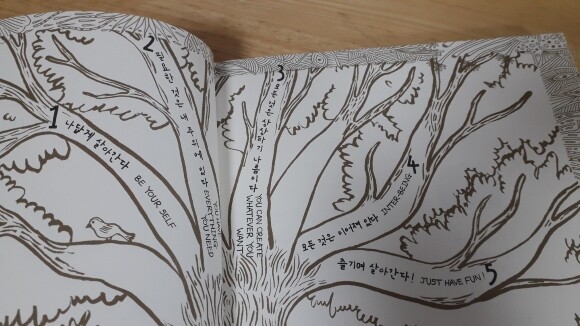 1 나답게 살아간다 BE YOUR SELF
2 필요한 것은 내 주위에 있다
YOU HAVE
EVERYTHING
YOU NEED
3 모든 것은 상상하기 나름이다
YOU CAN CREATE
WHATEVER YOU
WANT
4 모든 것은 이어져 있다 INTER-BEING
즐기며 살아간다! JUST HAVE FUN! 5